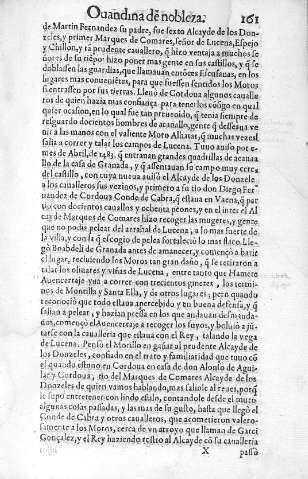 Ouandina de nobleza. 161
de Martin Fernandez su padre, fue sexto Alcayde de los Don-
zeles, y primer Marques de Comares, señor de Lucena, Espejo
y Chillon, y tā prudente cauallero, q̄ hizo ventaja a muchos se
ñores de su tiēpo: hizo poner mas gente en sus castillos, y q̄ se
doblassen las guardias, que llamauan entōces Escusanas, en los
lugares mas conueniētes, para que fuessen sentidos los Moros
si entrassen por sus tierras. Lleuò de Cordoua algunos caualle-
ros de quien hazia mas confiança para tenerlos cōsigo en qual
quier ocasion, en lo qual fue tan preuenido, q̄ tenia siempre de
resguardo docientos hombres de acauallo, gente q̄ desseaua ve
nir a las manos con el valiente Moro Aliatar, q̄ muchas vezes
salia a correr y talar los campos de Lucena. Tuuo auiso por e-
mes de Abril, de 1483. q̄ entrauan grandes quadrillas de acaua
llo de la casa de Granada, y q̄ assentauan su campo muy cerca
del castillo, con cuya nueua auisò el Alcayde de los Donzele
a los caualleros sus vezinos, y primero a su tio don Diego Fer
nandez de Cordoua Conde de Cabra, q̄ estaua en Vaena, q̄ par
tio con docientos cauallos y ochenta peones, y en el inter el Al
cayde Marques de Comares hizo recoger las mugeres, y gente
que no podia pelear del arrabal de Lucena, a lo mas fuerte de
la villa, y con la q̄ escogio de pelea fortalecio lo mas flaco. Lle-
gò Boabdelí de Granada antes de amanecer, y començò a batir
el lugar, recibiendo los Moros tan gran daño, q̄ se retiraron a
talar los oliuares y viñas de Lucena, entre tanto que Hamete
Auencerraje yua a correr con trecientos ginetes, los termi-
nos de Montilla y Santa Ella, y de otros lugares, pero quando
reconocio que todo estaua apercebido y en buena defensa, y q̄
saltan a pelear, y hazian pressa en los que andauan desmanda-
dos, començò el Auencerraje a recoger los suyos, y boluio a jū-
tarse con la caualleria que estaua con el Rey, talando la vega
de Lucena. Pensò el Morillo en gañar al prudente Alcayde de
los Donzeles, confiado en el trato y familiaridad que tuuo cō
el quando estuuo en Cordoua en casa de don Alonso de Aguil
lar y Cordoua, tio del Marques de Comares Alcayde de los
Donzeles de quien vamos hablando, mas saliole al reues, porq̄
le supo entretener con lindo estilo, contandole desde el muro
algunas cosas passadas, y las mas de su gusto, hasta que llegò el
Conde de Cabra y otros caualleros, que acometieron valero-
samente a los Moros, cerca de vn arroyo que llaman de Garci
Gonçalez, y el Rey haziendo rostro al Alcayde cō su caualleria
X passò